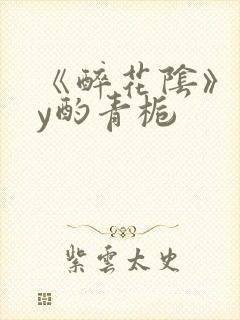 《醉花陰》
y酌青栀
紫雲太史